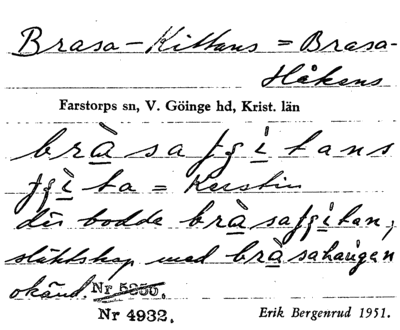 Brasa-Kittans = Brasa-
Håkens
Farstorps sn, V. Göinge hd, Krist. län
bràsafgitans
fgìta = Kerstin
där bodde bràsafgitan,
släktskap med bràsahaugen
okänd. Nr 5350.
Nr 4932.
Erik Bergenrud 1951.